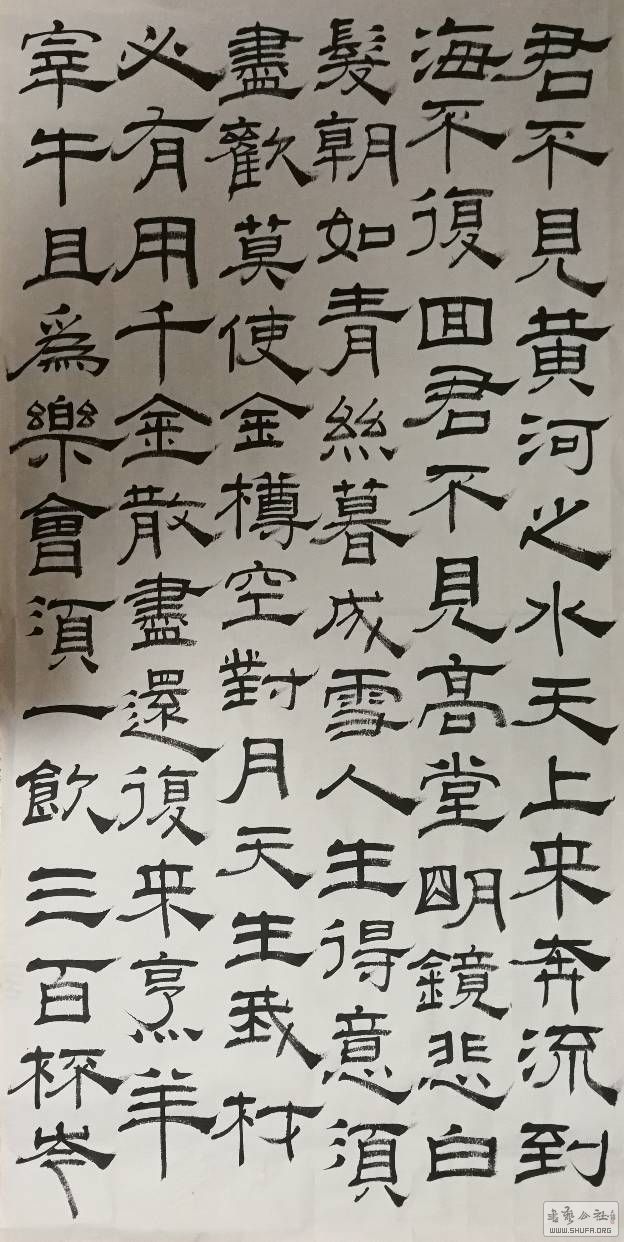 君不見黄河之水天上来奔流到
海不復回君不見高堂明鏡悲白
髮朝如青絲暮成雪人生得意須
盡歡莫使金樽空對月天生我材
必有用千金散盡還復来烹羊
宰牛且爲樂會須一飲三百杯岑
書藝公社
WWW.SHUFA.ORG